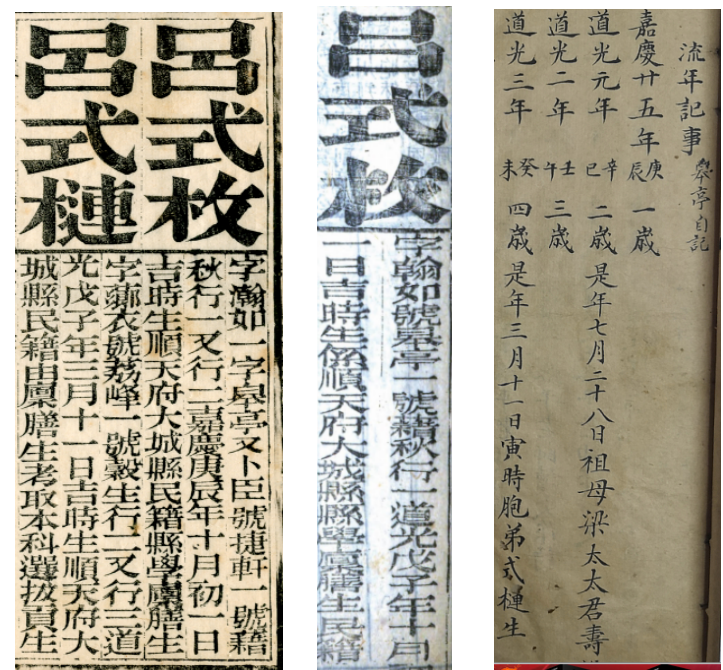 呂式枚
字瀚如一字臯亭又卜臣號捷軒一號藉
秋行一又行二嘉慶庚辰年十月初一日
吉時生順天府大城縣民籍縣學廩膳生
呂式槤
字薌衣號荔峰一號穀生行二又行三道
光戊子年三月十一日吉時生順天府大
城縣民籍由廩膳生考取本科選拔貢生
呂式枚
字翰如號臯亭一號藉秋行一道光戊子年十月
一日吉時生係順天府大城縣縣學廩膳生民籍
流年記事 臯亭自記
嘉慶廿五年 庚辰 一歲
道光元年 辛巳 二歲 是年七月二十八日祖母梁太太君壽
道光二年 壬午 三歲
道光三年 癸未 四歲 是年三月十一日寅時胞弟式槤生